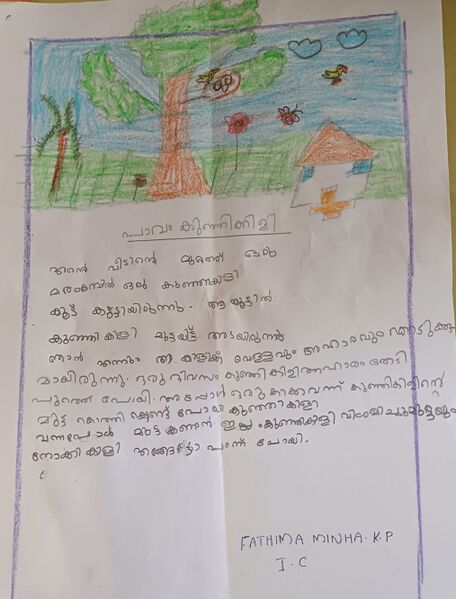 പാവം കുഞ്ഞിക്കിളി
എന്റെ വീടിന്റെ മുറ്റത്ത് ഒരു
മരക്കൊമ്പിൽ ഒരു കുഞ്ഞിക്കിളി
കൂട് കൂട്ടിയിരുന്നു. ആ കൂട്ടിൽ
കുഞ്ഞിക്കിളി മുട്ടയിട്ട് അടയിരുന്നു
ഞാൻ എന്നും ആ കിളിക്ക് വെള്ളവും ആഹാരവും കൊടുക്കു
മായിരുന്നു. ഒരു ദിവസം കുഞ്ഞിക്കിളി ആഹാരം തേടി
പുറത്ത് പോയി. അപ്പോൾ ഒരു കാക്ക വന്ന് കുഞ്ഞിക്കിളിന്റെ
മുട്ട കൊത്തി കൊണ്ട് പോയി കുഞ്ഞിക്കിളി
വന്നപ്പോൾ മുട്ട കണ്ടില്ല കുഞ്ഞിക്കിളി
നോക്കി കിളി എങ്ങോട്ടോ പറന്ന് പോയി.
FATHIMA MINHA. K. P
I. C